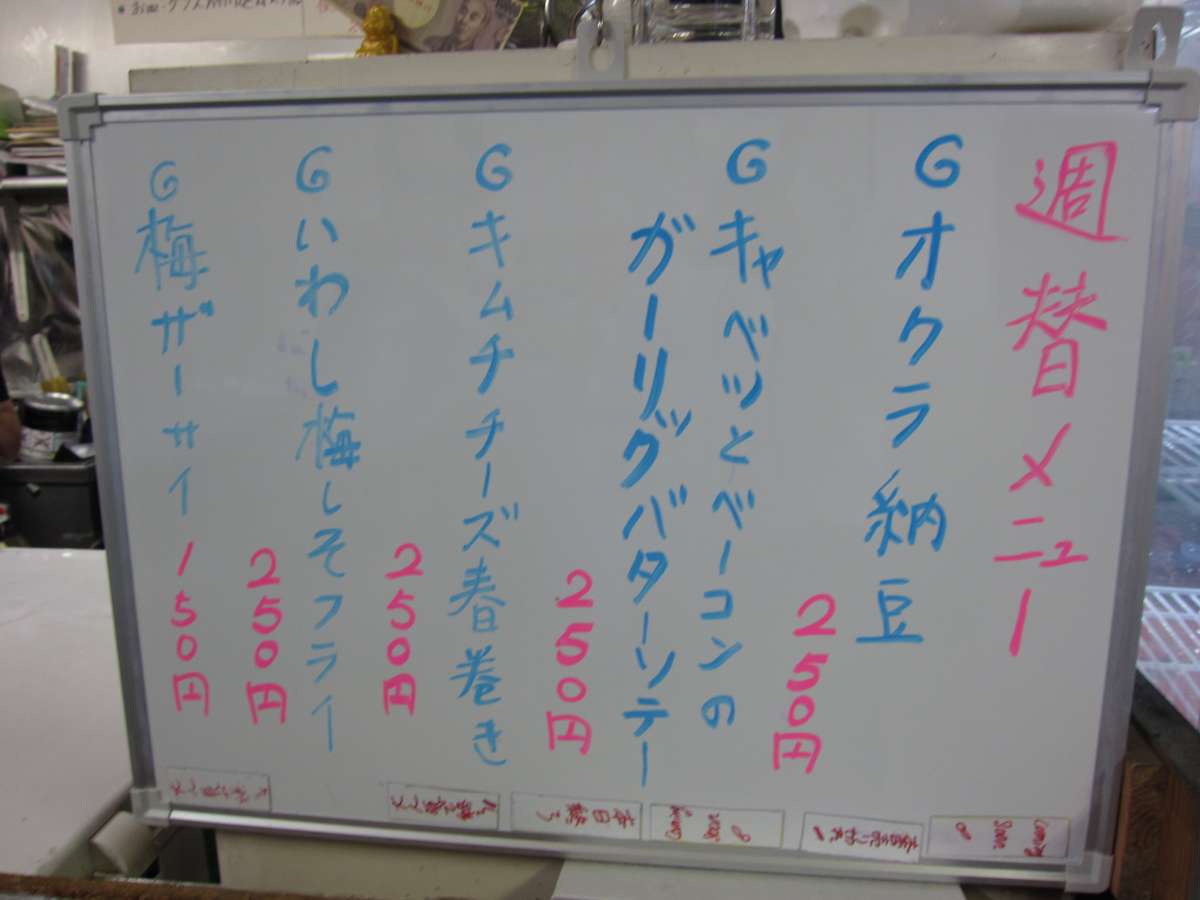 週替メニュー
Gオクラ納豆
250円
Gキャベツとベーコンの
ガーリックバターソテー
250円
Gキムチチーズ春巻き
250円
Gいわし梅しそフライ
250円
G梅ザーサイ
150円
本日終了
Coming
Soon